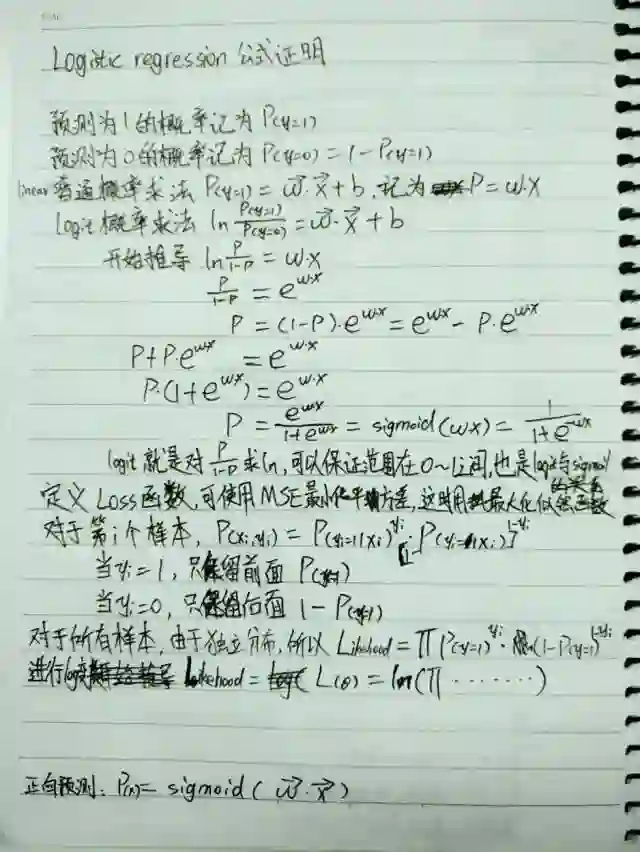 Logistic regression 公式证明
预测为1的概率记为 P(y=1)
预测为0的概率记为 P(y=0) = 1 - P(y=1)
linear 普通概率求法 P(y=1) = w⃗·x⃗ + b, 记为 P = w·x
logit 概率求法 ln P(y=1)/P(y=0) = w⃗·x⃗ + b
开始推导 ln P/(1-P) = w·x
P/(1-P) = e^(w·x)
P = (1-P)·e^(w·x) = e^(w·x) - P·e^(w·x)
P + P·e^(wx) = e^(w·x)
P·(1+e^(wx)) = e^(w·x)
P = e^(wx)/(1+e^(wx)) = sigmoid(wx) = 1/(1+e^(-wx))
logit 就是对 P/(1-P) 求ln, 可以保证范围在0~1之间, 也是logit与sigmoid
的关系
定义 Loss函数, 可使用MSE最小化平均方差, 这时用最大化似然函数
对于第i个样本, P(xi,yi) = P(yi=1|xi)^yi · [1-P(yi=1|xi)]^(1-yi)
当yi=1, 只保留前面 P(y=1)
当yi=0, 只保留后面 1-P(y=1)
对于所有样本, 由于独立分布, 所以 Likehood = Π P(y=1)^yi · (1-P(y=1))^(1-yi)
进行log Likehood = L(θ) = ln(Π ·······)
正向预测: P(x) = sigmoid( w⃗·x⃗ )